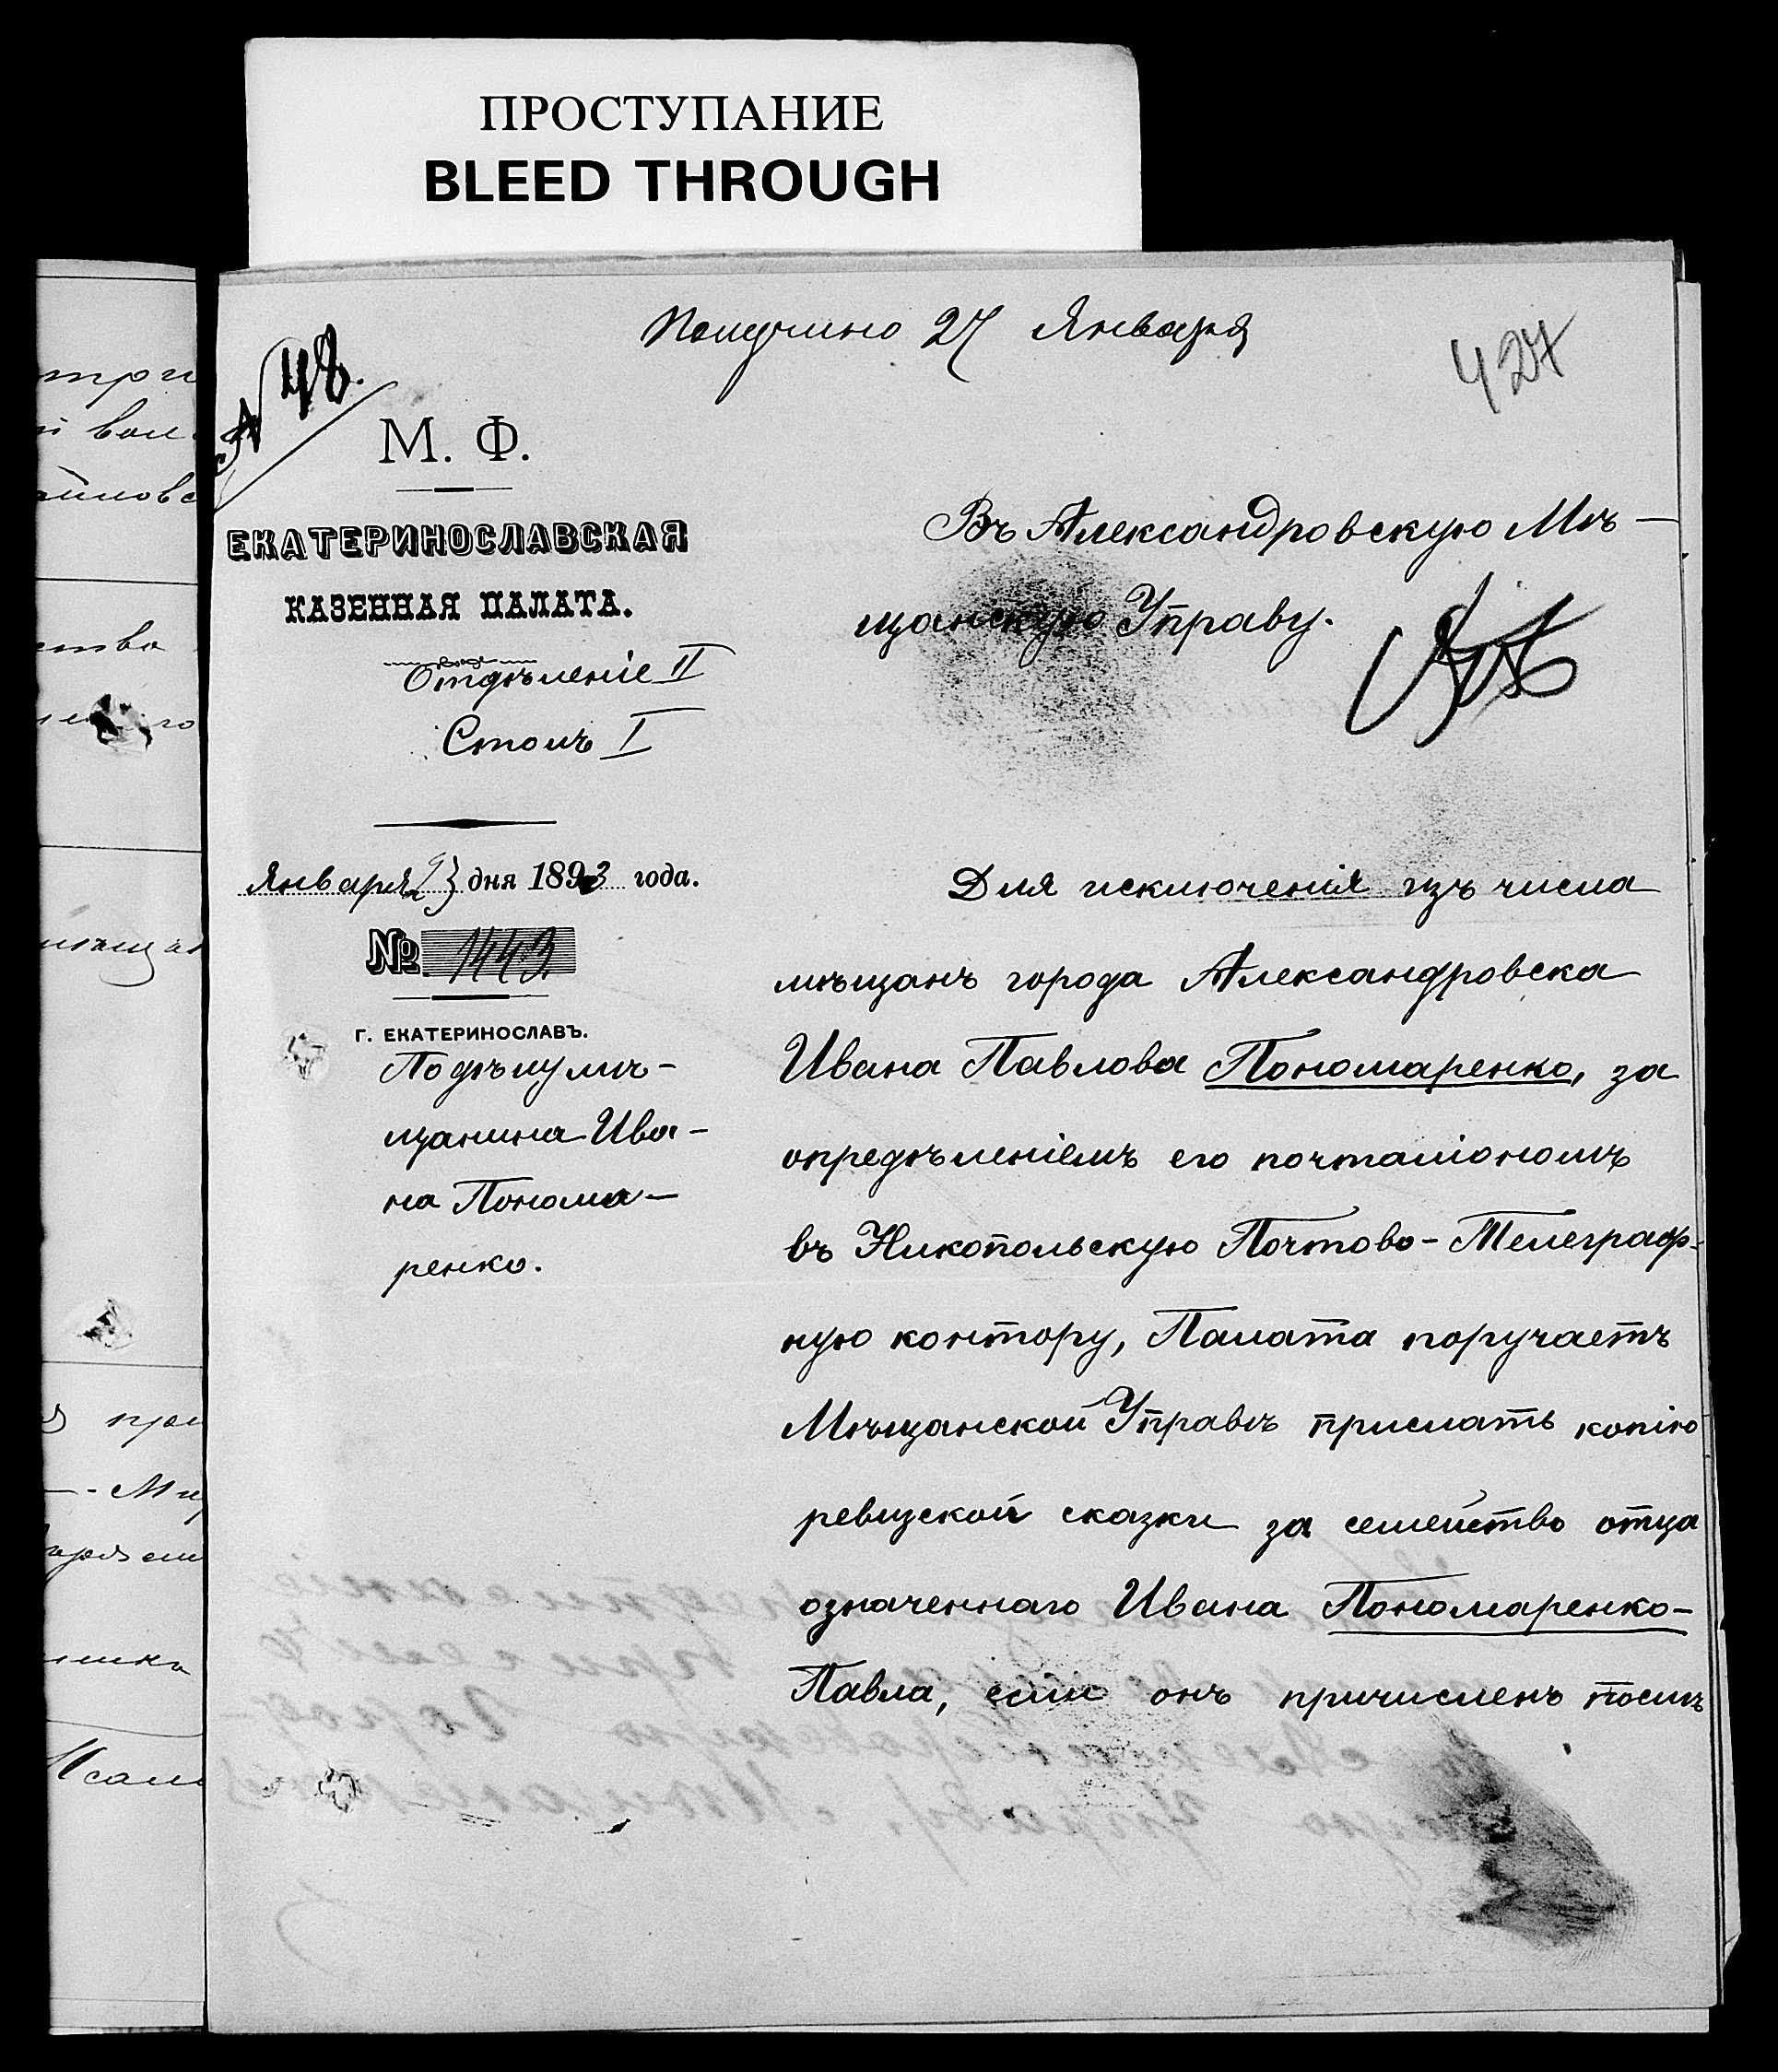 ПРОСТУПАНИЕ
BLEED THROUGH
Получено 27 Января
427
№ 48.
М. Ф.
ЕКАТЕРИНОСЛАВСКАЯ
КАЗЕННАЯ ПАЛАТА.
Отдѣленіе II
Столъ I
Января 23 дня 1893 года.
№ 1443
Г. ЕКАТЕРИНОСЛАВЪ.
По дѣлу мѣ-
щанина Ива-
на Понома-
ренко.
Въ Александровскую Мѣ-
щанскую Управу.
Для исключенія изъ числа
мѣщанъ города Александровска
Ивана Павлова Пономаренко, за
опредѣленіемъ его почталіономъ
въ Никопольскую Почтово-Телеграф-
ную контору, Палата поручаетъ
Мѣщанской Управѣ прислать копію
ревизской сказки за семейство отца
означеннаго Ивана Пономаренко-
Павла, если онъ причисленъ послѣ